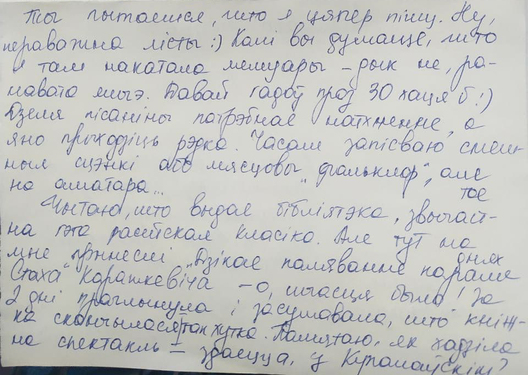 Ты пытаешся, што я цяпер пішу. Ну,
пераважна лісты :) Калі вы думаеце, што
я там накатала мемуары – дык не, ра-
навата яшчэ. Давай гадоў праз 30 хаця б :)
Дзеля пісаніны патрэбнае натхненне, а
яно прыходзіць рэдка. Часам запісваю смеш-
ныя сцэнкі або мясцовы „фальклор", але
на аматара...
Чытаю, што выдае бібліятэка, звычай-
тое
на гэта расейская класіка. Але тут на
днях
мне прынеслі „Дзікае паляванне караля
Стаха" Караткевіча – о, шчасця было! За
2 дні праглынула і засумавала, што кніж-
ка скончылася так хутка. Памятаю, як хадзіла
на спектакль – здаецца, у Купалаўскім?